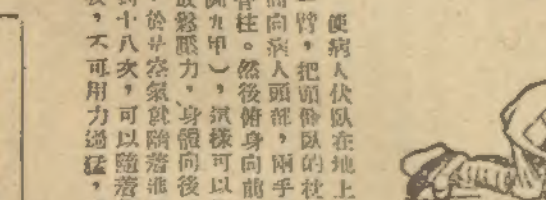 使病人伏臥在地上
臂，把頭偏臥的枕
面向病人頭部，兩手
脊柱。然後俯身向前
圖九甲），這樣可以
放鬆壓力，身體向後
於是空氣就隨着進
到十八次，可以隨着
，不可用力過猛，